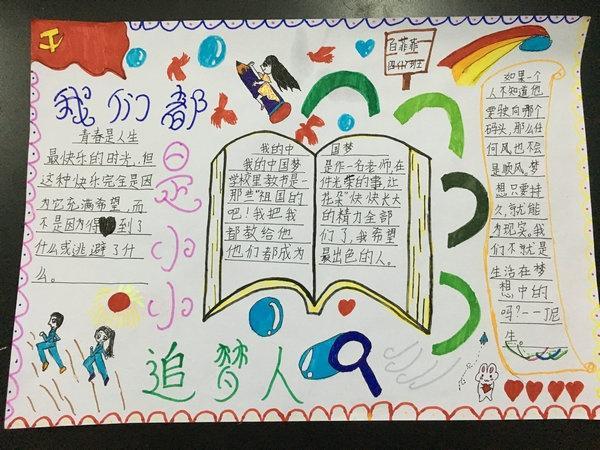 我们都
是小小
追梦人
白菲菲
青春是人生
最快乐的时光,但
这种快乐完全是因
为它充满希望,而
不是因为得到了
什么或逃避了什
么。
我的中 国梦
我的中国梦
学校里教书是一
那些"祖国的
吧!我把我
都教给他
他们都成为
是作一名老师,在
件光荣的事,让
花朵"快快长大
的精力全部
们了,我希望
最出色的人。
如果一个
人不知道他
要驶向哪个
码头,那么任
何风也不会
是顺风。梦
想只要持
久,就能
为现实。我
们不就是
生活在梦
想中的
吗?——丁尼
生。